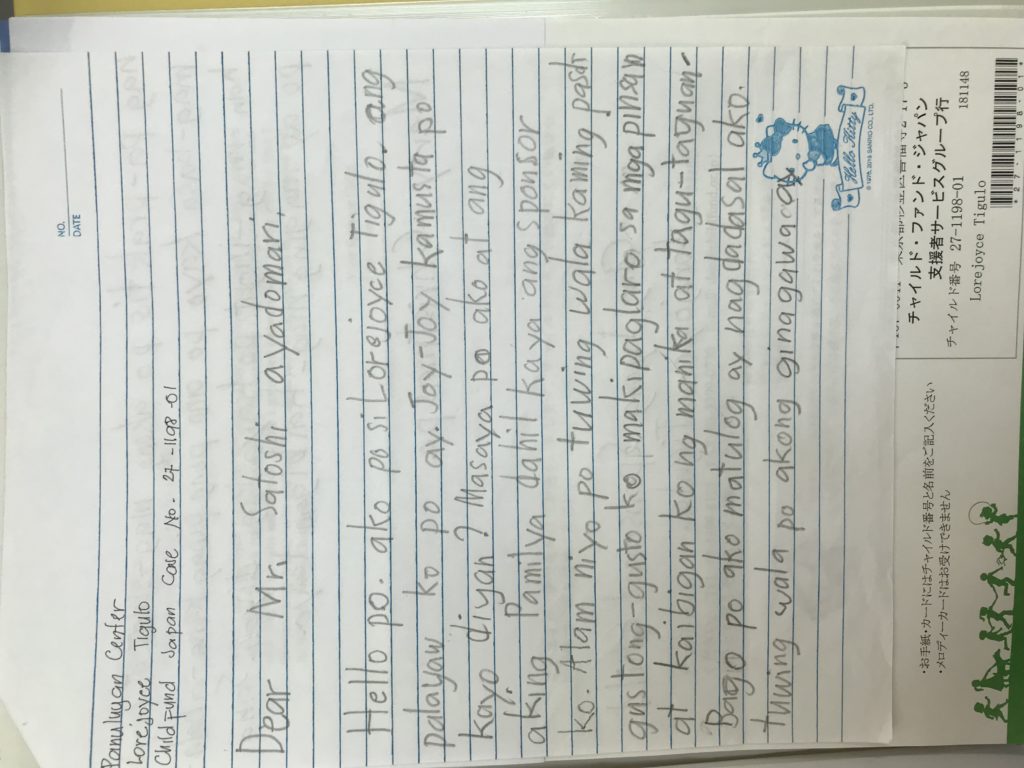 NO.
DATE
Pamuluyan Center
Lorejoyce Tigulo
Childfund Japan Case No. 27-1198-01
Dear Mr. Satoshi ayadoman,
Hello po. ako po si Lorejoyce Tigulo. ang
palayaw ko po ay. Joy-Joy kamusta po
kayo diyan? Masaya po ako at ang
aking Pamilya dahil kayo ang sponsor
ko. Alam niyo po tuwing wala kaming pasok
gustong-gusto ko makipaglaro sa mga pinsan
at kaibigan ko ng manika at tagu-taguan.
Bago po ako matulog ay nagdadasal ako.
tuwing wala po akong ginagawa
Hello Kitty
© 1976, 2015 SANRIO CO., LTD.
チャイルド・ファンド・ジャパン
支援者サービスグループ行
チャイルド番号 27-1198-01 181148
Lorejoyce Tigulo
*27-1198-01*
・お手紙・カードにはチャイルド番号と名前をご記入ください
・メロディーカードはお受けできません